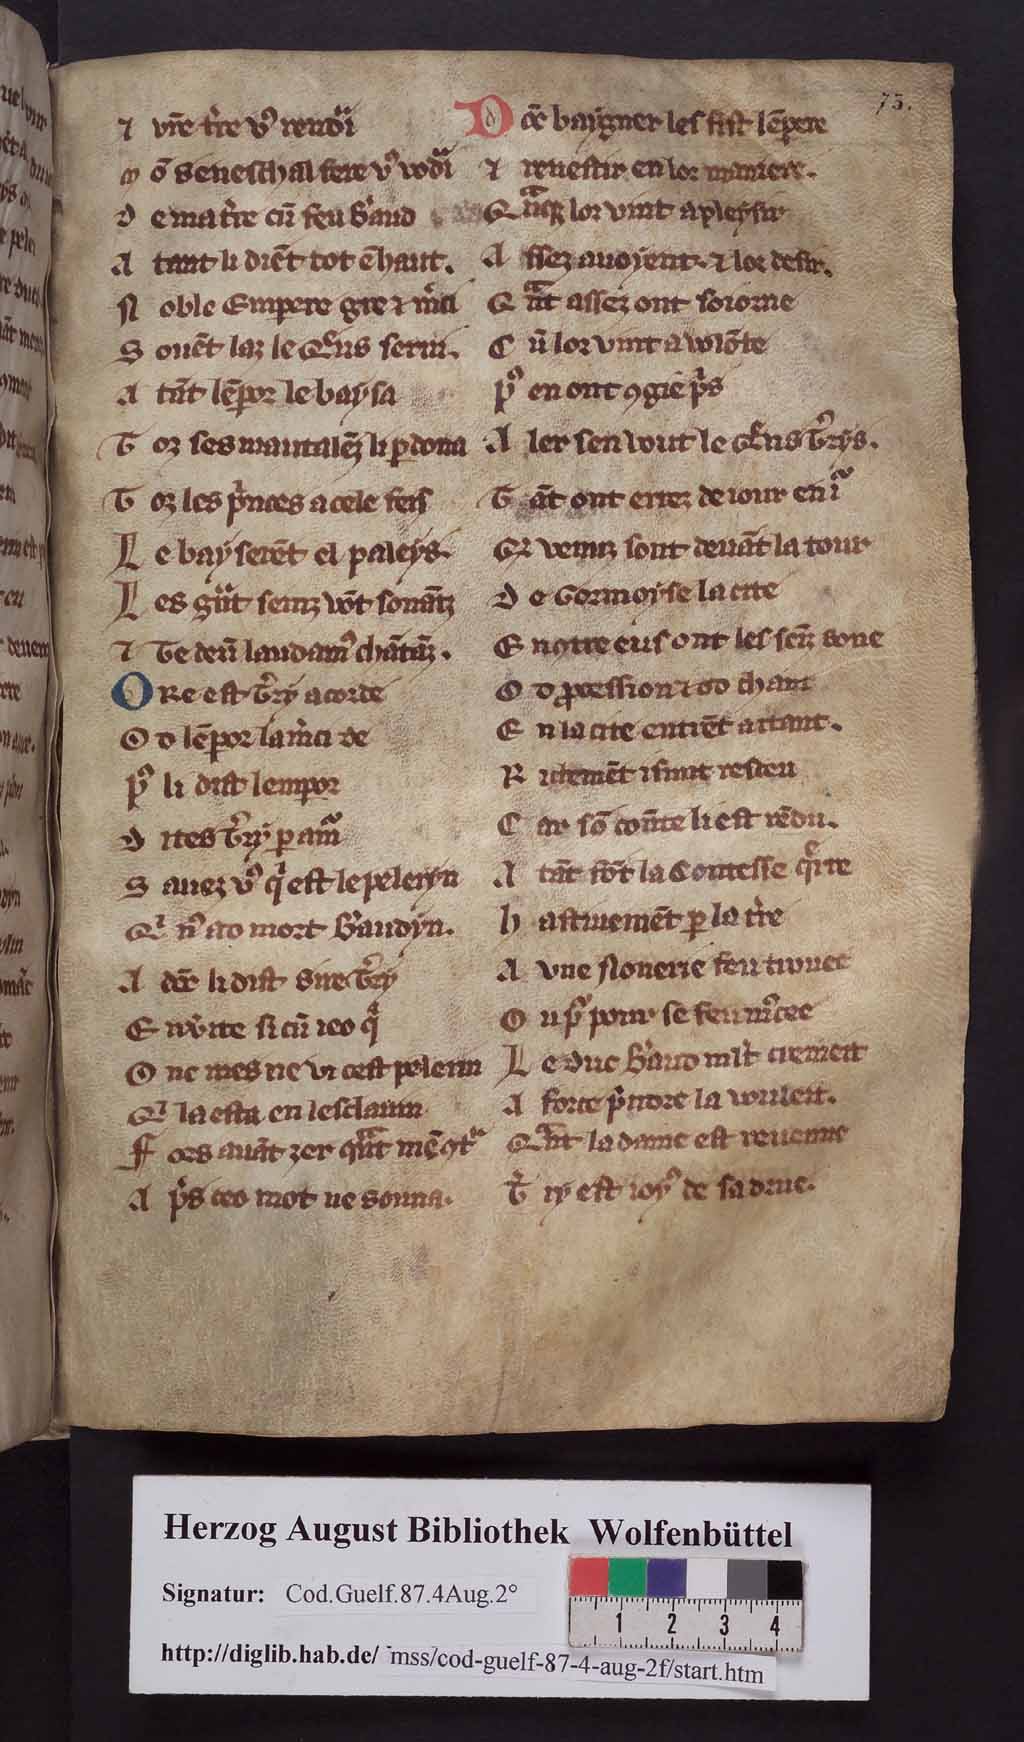 ⁊ vr̄e t̄re vꝰ rendͣi
M ō Seneschal fere vꝰ vodͣi
D e ma t̄re cū feu B'aud
A tant li diēt tot ē haut.
N oble Empere gre ⁊ m̄ci
S ouēt laz le Quēs Terri.
A tāt lēpor le baysa
T oz ses mautalēz li ꝑdona
T oz les p̄nces a cele feis
L e bayserēt el paleys.
L es gūt seinz vōt sonāz
⁊ Te deū laudamꝰ chātāz.
O Re est T'ry acorde
O d lēpor la m̄ci de
Pꝰ li dist lempor
D ites T'ry ꝑ amͣ
S auez vꝰ qͥ est le peleryn
Qͥ nꝰ ad mort B'audyn.
A dōc li dist Sire T'ry
E n v̄ite si cū ieo qͥ
O nc mes ne vi cest pelerin
Qͥ la esta en lesclauin
F ors auāt zer qͣnt mēꝯtͣ
A p̄s ceo mot ne sonna.
73.
D ōc baigner les fist lēpere
⁊ reuestir en lor manere.
Qͣnqꝫ lor vint a pleysir
A ssez auoyent ⁊ lor desir.
Qͣnt assez ont soiorne
C ū lor vint a volōte
Pꝰ en ont ꝯgie p̄s
A ler sen vout le Quēs T'rys.
T āt ont errez de iour en iͬ
Qͥ venuz sont deuāt la tour
D e Gormoyse la cite
E ncōtre eus ont les seīz sone
O d ꝓcession ⁊ od chant
E n la cite entrēt a tant.
R ichemēt i sunt resceu
C ar sō conte li est rēdu.
A tāt fōt la Contesse qͥrre
H astiuemēt ꝑ la t̄re
A vne Nonerie feu trouee
O u pͬ pour se feu m̄cee
L e Duc B'aud mlt cremeit
A force p̄ndre la vouleit.
Qͣnt la dame est reuenue
T' ry est ioyꝰ de sa drue.
Herzog August Bibliothek Wolfenbüttel
Signatur: Cod.Guelf.87.4Aug.2°
1 2 3 4
http://diglib.hab.de/ mss/cod-guelf-87-4-aug-2f/start.htm